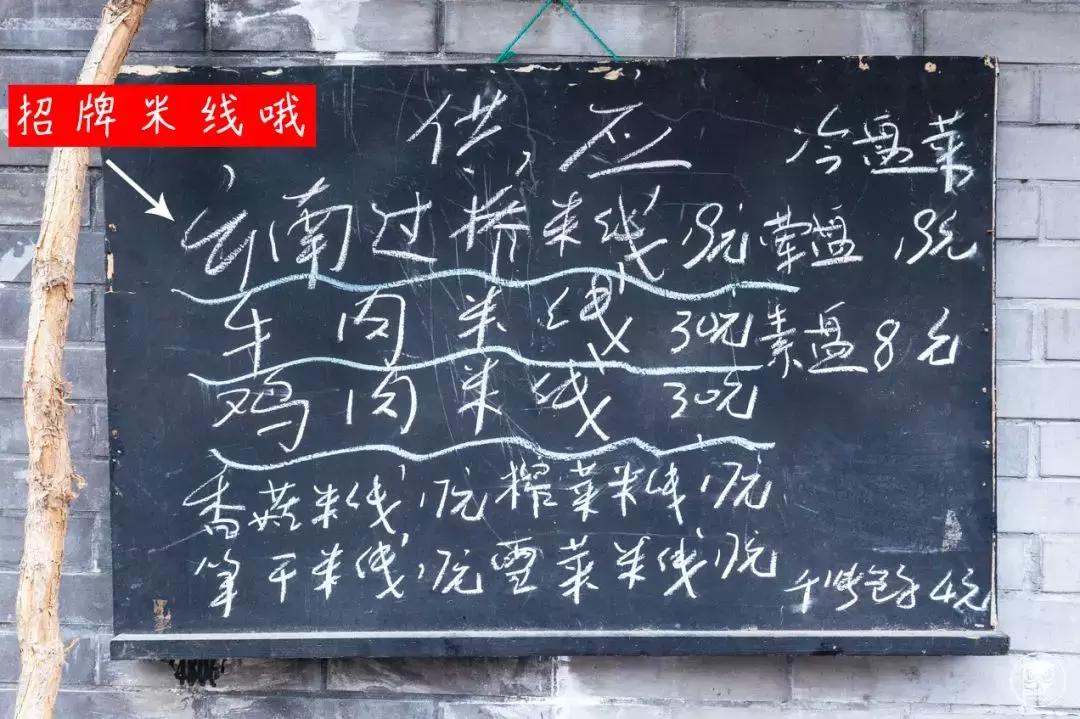 招牌米线哦
供应
冷盘菜
云南过桥米线 19元 荤盘 19元
牛肉米线 30元 素盘 8元
鸡肉米线 30元
香菇米线 17元 榨菜米线 17元
笋干米线 17元 雪菜米线 17元
4元